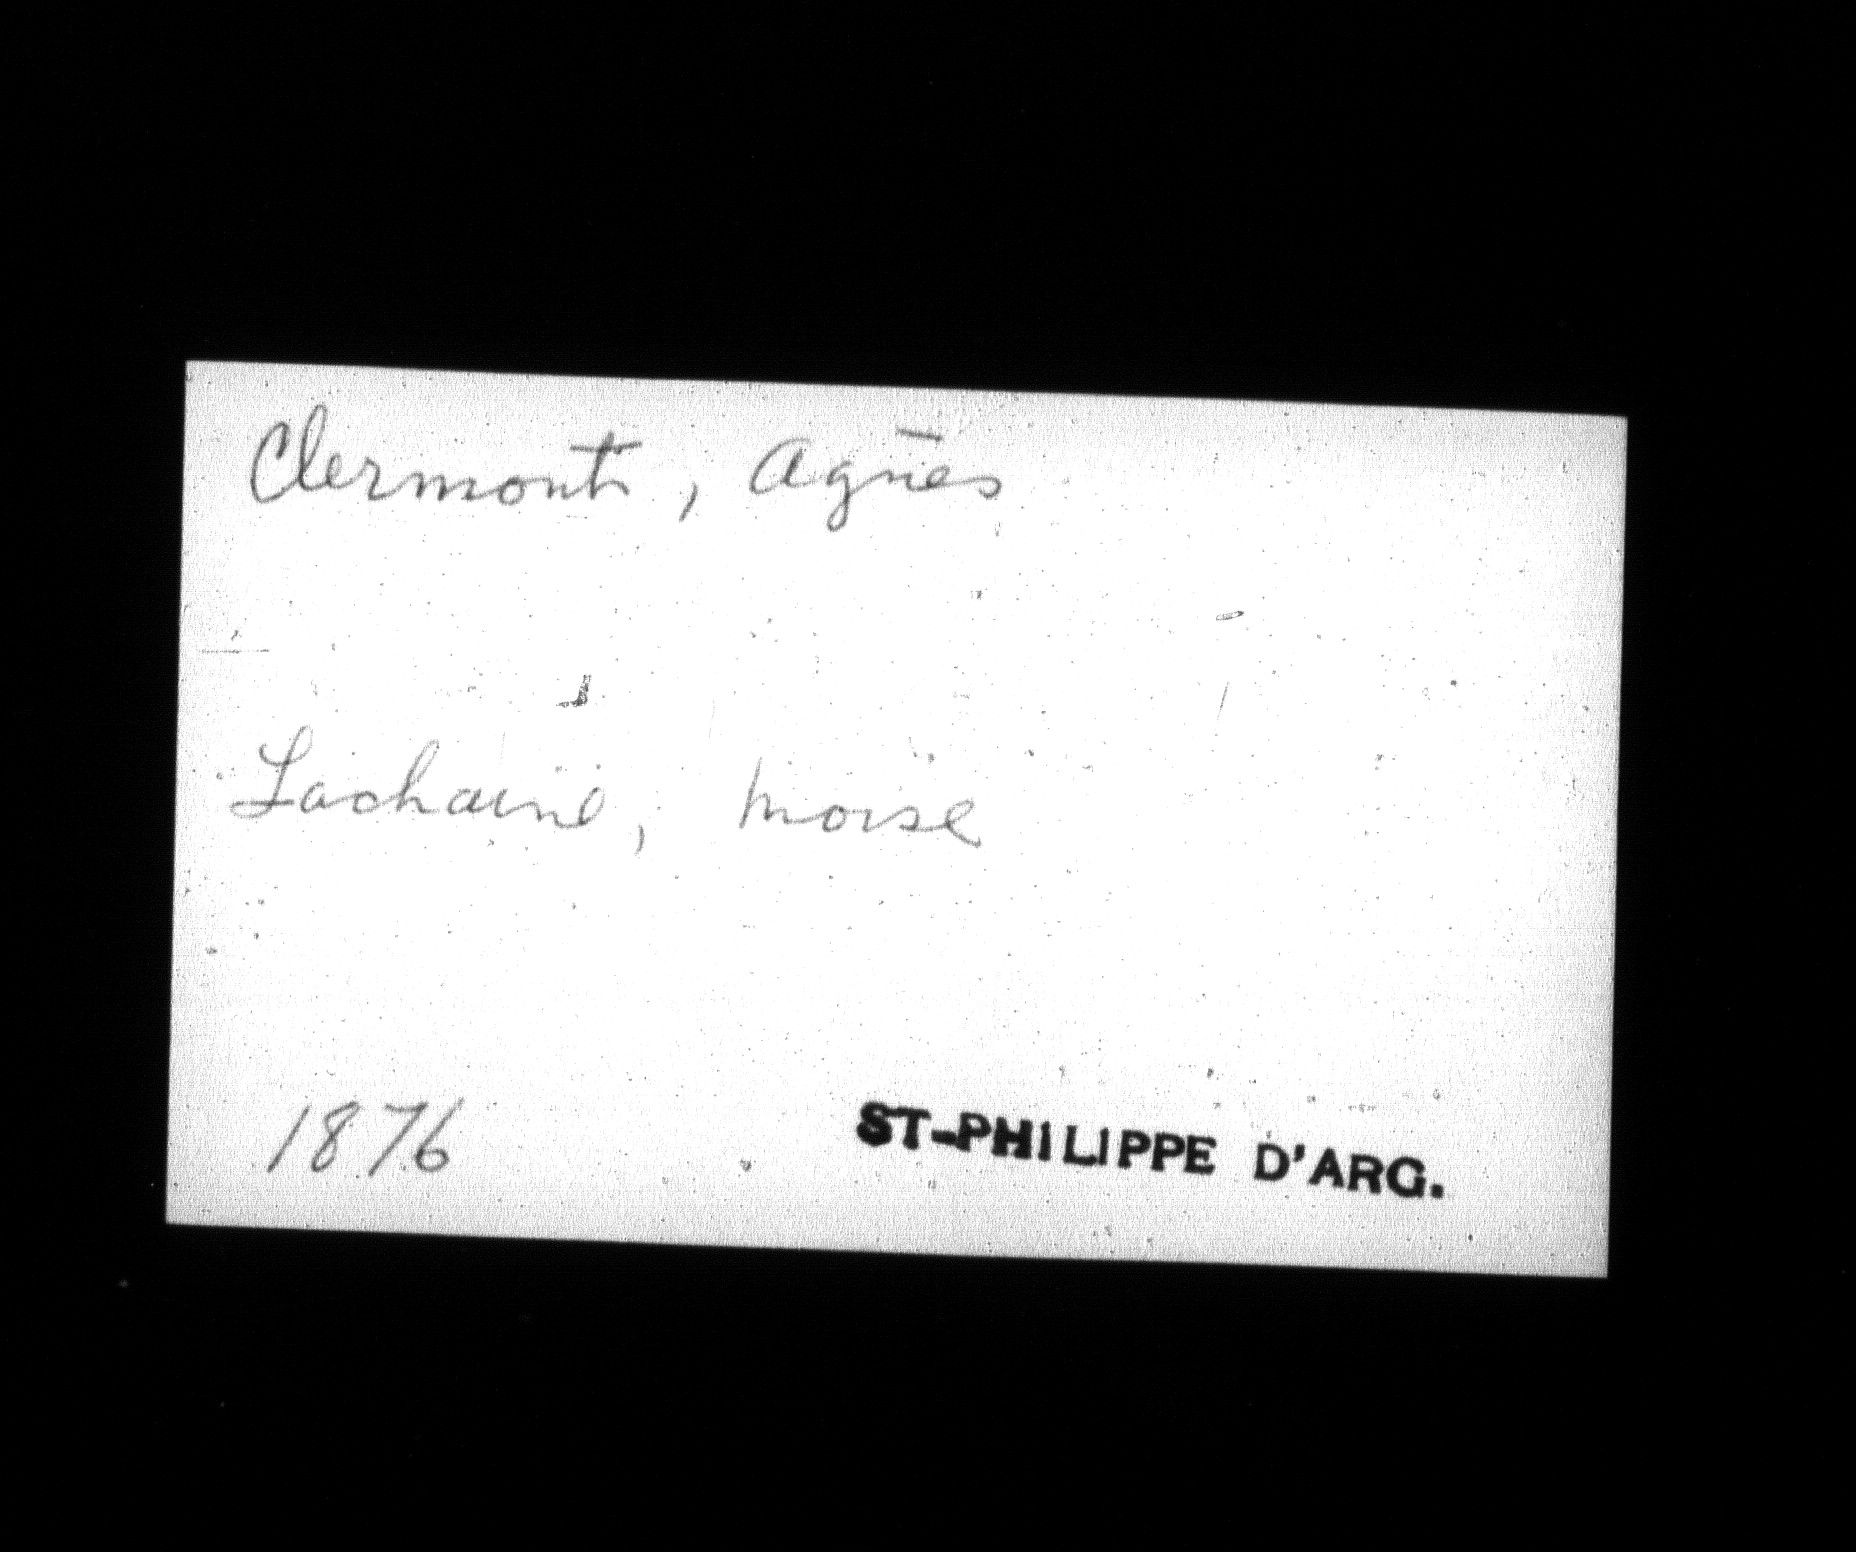 Clermont, Agnès
Lachaine, Moise
1876
ST-PHILIPPE D'ARG.